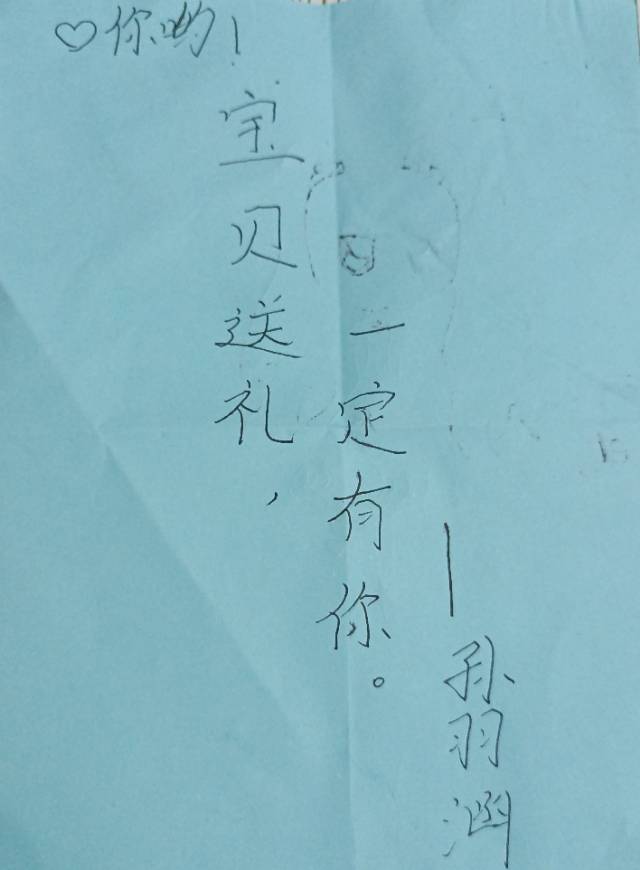 ♡你哟！
宝贝送礼，
一定有你。
—孙羽涵